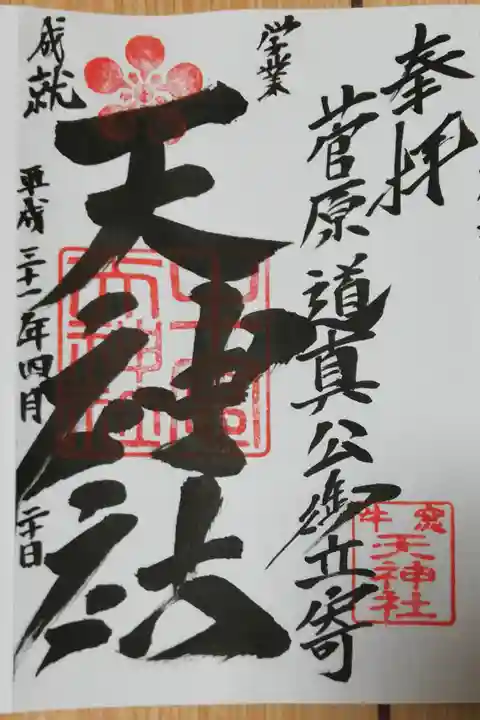 奉拝
学業
菅原道真公御立寄
天神社
成就
平成三十一年四月二十日
天神社